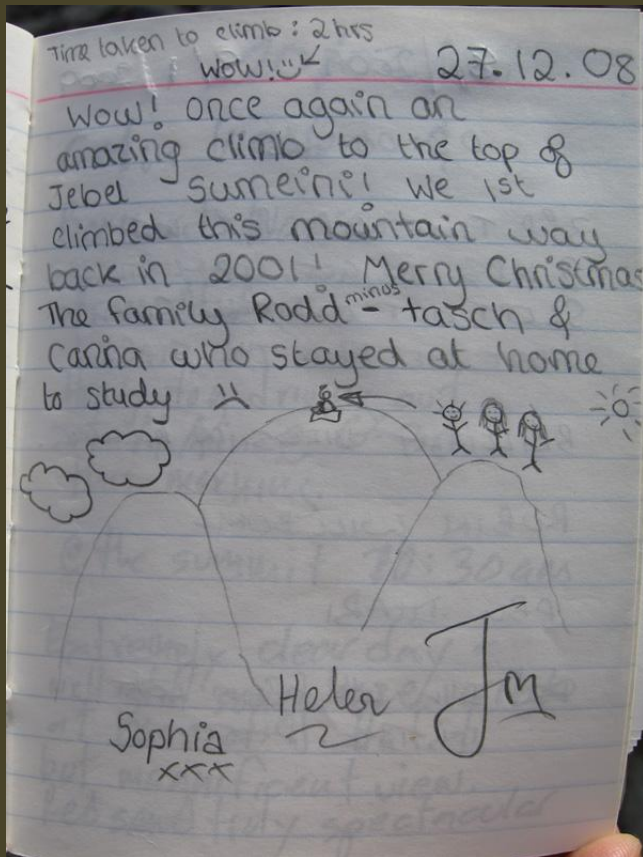 Time taken to climb: 2hrs
WOW! 27.12.08
Wow! Once again an
amazing climb to the top of
Jebel Sumeini! We 1st
climbed this mountain way
back in 2001! Merry Christmas
The family Rodd minus - tasch &
Carina who stayed at home
to study
Helen
Sophia
xxx